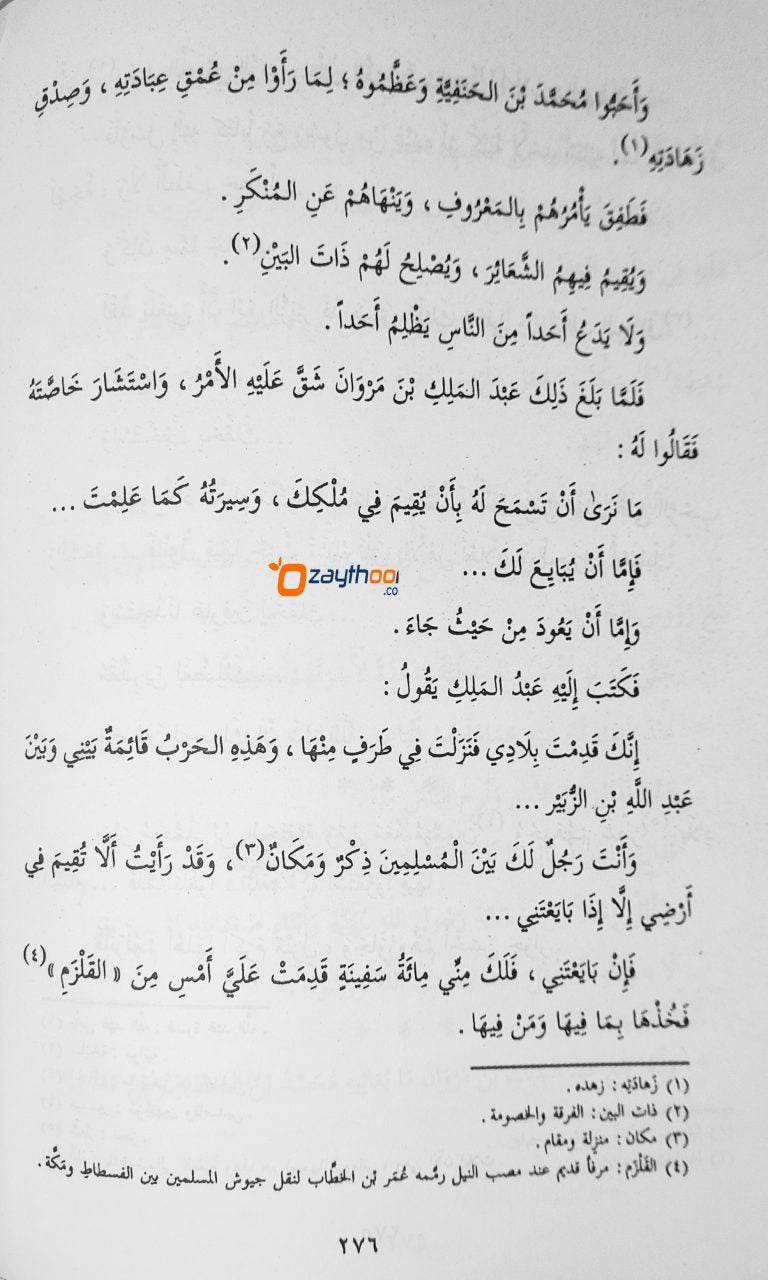 وَأَحَبُّوا مُحَمَّدَ بْنَ الحَنَفِيَّةِ وَعَظَّمُوهُ ؛ لِمَا رَأَوْا مِنْ عُمْقِ عِبَادَتِهِ ، وَصِدْقِ
زَهَادَتِهِ(١).
فَطَفِقَ يَأْمُرُهُمْ بِالمَعْرُوفِ ، وَيَنْهَاهُمْ عَنِ المُنْكَرِ .
وَيُقِيمُ فِيهِمُ الشَّعَائِرَ ، وَيُصْلِحُ لَهُمْ ذَاتَ البَيْنِ(٢).
وَلَا يَدَعُ أَحَداً مِنَ النَّاسِ يَظْلِمُ أَحَداً .
فَلَمَّا بَلَغَ ذَلِكَ عَبْدَ المَلِكِ بْنَ مَرْوَانَ شَقَّ عَلَيْهِ الأَمْرُ ، وَاسْتَشَارَ خَاصَّتَهُ
فَقَالُوا لَهُ :
مَا نَرَىٰ أَنْ تَسْمَحَ لَهُ بِأَنْ يُقِيمَ فِي مُلْكِكَ ، وَسِيرَتُهُ كَمَا عَلِمْتَ ...
فَإِمَّا أَنْ يُبَايِعَ لَكَ ...
zaythoon
.co
وَإِمَّا أَنْ يَعُودَ مِنْ حَيْثُ جَاءَ .
فَكَتَبَ إِلَيْهِ عَبْدُ المَلِكِ يَقُولُ :
إِنَّكَ قَدِمْتَ بِلَادِي فَنَزَلْتَ فِي طَرَفٍ مِنْهَا ، وَهَذِهِ الحَرْبُ قَائِمَةٌ بَيْنِي وَبَيْنَ
عَبْدِ اللَّهِ بْنِ الزُّبَيْرِ ...
وَأَنْتَ رَجُلٌ لَكَ بَيْنَ الْمُسْلِمِينَ ذِكْرٌ وَمَكَانٌ(٣)، وَقَدْ رَأَيْتُ أَلَّا تُقِيمَ فِي
أَرْضِي إِلَّا إِذَا بَايَعْتَنِي ...
فَإِنْ بَايَعْتَنِي ، فَلَكَ مِنِّي مِائَةُ سَفِينَةٍ قَدِمَتْ عَلَيَّ أَمْسِ مِنَ « القَلْزَمِ »(٤)
فَخُذْهَا بِمَا فِيهَا وَمَنْ فِيهَا .
(١) زَهَادَتِه : زهده .
(٢) ذات البين : الفرقة والخصومة .
(٣) مكان : منزلة ومقام .
(٤) القَلْزَم : مرفأ قديم عند مصب النيل رمَّمه عُمَر بْن الخطَّاب لنقل جيوش المسلمين بين الفسطاطِ ومَكَّة .
٢٧٦